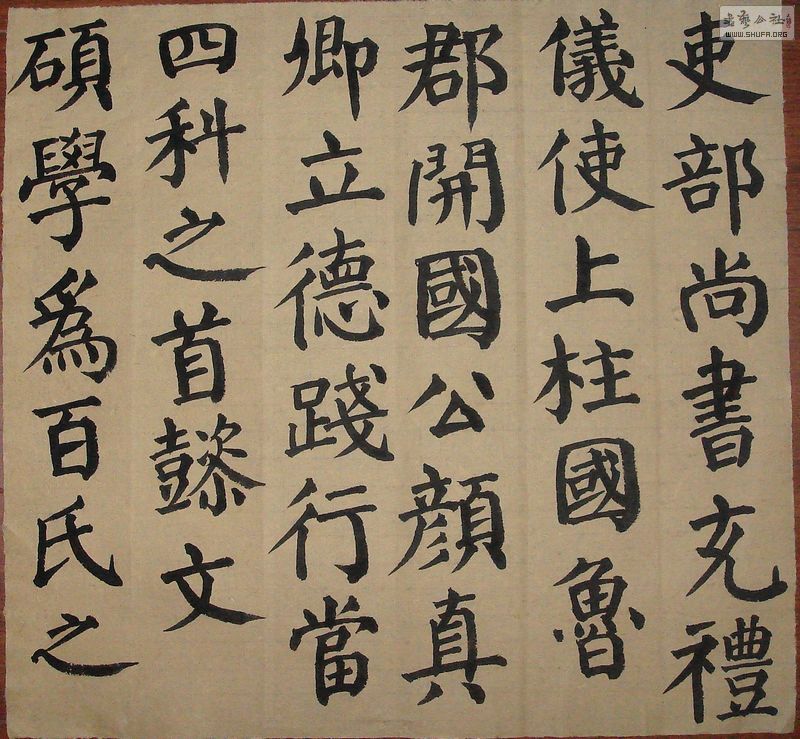 吏部尚書充禮
儀使上柱國魯
郡開國公顏真
卿立德踐行當
四科之首懿文
碩學為百氏之
WWW.SHUFA.ORG